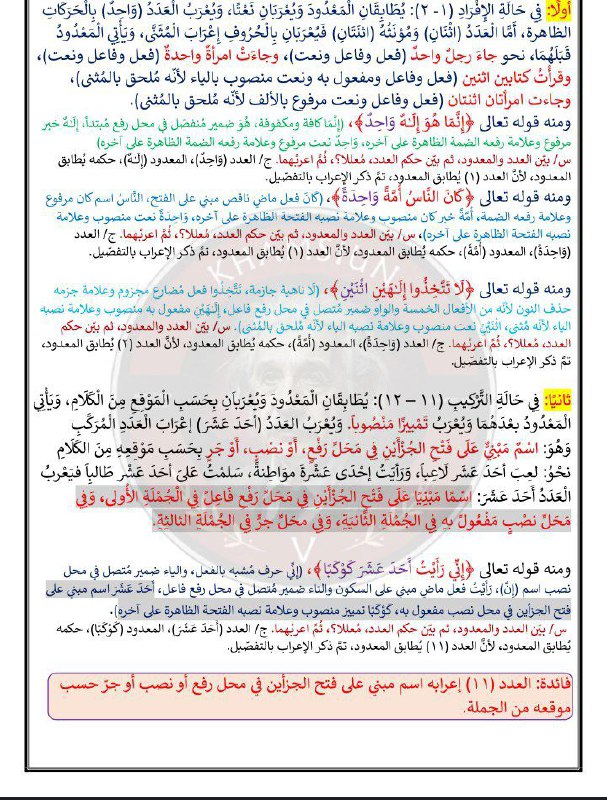 أولًا: فِي حَالَةِ الإِفْرَادِ (١- ٢): يُطَابِقَانِ الْمَعْدُودَ وَيُعْرَبَانِ نَعْتًا، وَيُعْرَبُ الْعَدَدُ (وَاحِدٌ) بِالْحَرَكَاتِ
الظاهرة، أمَّا الْعَدَدُ (اثْنَانِ) وَمُؤَنَّثُهُ (اثنَتَانِ) فَيُعْرَبَانِ بِالْحُرُوفِ إِعْرَابَ الْمُثَنَّى، وَيَأْتِي الْمَعْدُودُ
قَبْلَهُمَا، نحو جاءَ رجلٌ واحدٌ (فعل وفاعل ونعت)، وجاءَتْ امرأةٌ واحدةٌ (فعل وفاعل ونعت)،
وقرأتُ كتابين اثنين (فعل وفاعل ومفعول به ونعت منصوب بالياء لأنّه مُلحق بالمُثنى)،
وجاءت امرأتان اثنتان (فعل وفاعل ونعت مرفوع بالألف لأنّه مُلحق بالمُثنى).
ومنه قوله تعالى ﴿إِنَّمَا هُوَ إِلَـٰهٌ وَاحِدٌ﴾، (إنّمَا كافة ومكفوفة، هُوَ ضمير مُنفصل في محل رفع مُبتدأ، إلَـٰهٌ خبر
مرفوع وعلامة رفعه الضمة الظاهرة على آخره، وَاحِدٌ نعت مرفوع وعلامة رفعه الضمة الظاهرة على آخره)
س/ بيّن العدد والمعدود، ثم بيّن حكم العدد، مُعللا؟، ثُمَّ اعربُهما. ج/ العدد (وَاحِدٌ)، المعدود (إِلَـٰهٌ)، حكمه يُطابق
المعدود، لأنَّ العدد (١) يُطابق المعدود، تمّ ذكر الإعراب بالتفصيل.
ومنه قوله تعالى ﴿كَانَ النَّاسُ أُمَّةً وَاحِدَةً﴾، (كَانَ فعل ماضٍ ناقص مبني على الفتح، النَّاسُ اسم كان مرفوع
وعلامة رفعه الضمة، أُمَّةً خبر كان منصوب وعلامة نصبه الفتحة الظاهرة على آخره، وَاحِدَةً نعت منصوب وعلامة
نصبه الفتحة الظاهرة على آخره)، س/ بيّن العدد والمعدود، ثم بيّن حكم العدد، مُعللا؟، ثُمَّ اعربُهما. ج/ العدد
(وَاحِدَةً)، المعدود (أُمَّةً)، حكمه يُطابق المعدود، لأنَّ العدد (١) يُطابق المعدود، تمّ ذكر الإعراب بالتفصيل.
ومنه قوله تعالى ﴿لَا تَتَّخِذُوا إِلَـٰهَيْنِ اثْنَيْنِ﴾، (لَا ناهية جازمة، تَتَّخِذُوا فعل مُضارع مجزوم وعلامة جزمه
حذف النون لأنّه من الأفعال الخمسة والواو ضمير مُتصل في محل رفع فاعل، إِلَـٰهَيْنِ مفعول به منصوب وعلامة نصبه
الياء لأنّه مُثنى، اثْنَيْنِ نعت منصوب وعلامة نصبه الياء لأنّه مُلحق بالمُثنى). س/ بيّن العدد والمعدود، ثم بيّن حكم
العدد، مُعللا؟، ثُمَّ اعربُهما. ج/ العدد (وَاحِدَةً)، المعدود (أُمَّةً)، حكمه يُطابق المعدود، لأنَّ العدد (٢) يُطابق المعدود،
تمّ ذكر الإعراب بالتفصيل.
ثانيًا: فِي حَالَةِ التَّرْكِيبِ (١١ – ١٢): يُطَابِقَانِ الْمَعْدُودَ وَيُعْرَبَانِ بِحَسَبِ الْمَوْقِعِ مِنَ الْكَلَامِ، وَيَأْتِي
الْمَعْدُودُ بَعْدَهُمَا وَيُعْرَبُ تَمْيِيزًا مَنْصُوبًا. وَيُعْرَبُ العَدَدُ (أَحَدَ عَشَرَ) إِعْرَابَ الْعَدَدِ الْمُرَكَّبِ
وَهُوَ: اسْمٌ مَبْنِيٌّ عَلَى فَتْحِ الْجُزْأَيْنِ فِي مَحَلِّ رَفْعٍ، أَوْ نَصْبٍ، أَوْ جَرٍ بِحَسَبِ مَوْقِعِهِ مِنَ الكَلَامِ
نَحْوُ: لَعِبَ أَحَدَ عَشَرَ لَاعِباً، وَرَأَيْتُ إِحْدَى عَشْرَةَ مواطِنةً، سَلمْتُ عَلَىٰ أَحَدَ عَشَرَ طَالباً فَيُعْربُ
الْعَدَدُ أَحَدَ عَشَرَ: اسْمًا مَبْنِيًّا عَلَى فَتْحِ الجُزْأَيْنِ فِي مَحَلِّ رَفْعِ فَاعِلٍ فِي الْجُمْلَةِ الأُولى، وَفِي
مَحَلِّ نصْبٍ مَفْعُولٌ به فِي الجُمْلَةِ الثَّانِيَةِ، وَفِي محَلِّ جرٍّ فِي الجُمْلَةِ الثالثةِ.
KHARBUUN
V
ومنه قوله تعالى ﴿إِنِّي رَأَيْتُ أَحَدَ عَشَرَ كَوْكَبًا﴾، (إنّي حرف مُشبه بالفعل، والياء ضمير مُتصل في محل
نصب اسم (إنّ)، رَأَيْتُ فعل ماضٍ مبني على السكون والتاء ضمير مُتصل في محل رفع فاعل، أَحَدَ عَشَرَ اسم مبني على
فتح الجزأين في محل نصب مفعول به، كَوْكَبًا تمييز منصوب وعلامة نصبه الفتحة الظاهرة على آخره).
س/ بيّن العدد والمعدود، ثم بيّن حكم العدد، مُعللا؟، ثُمَّ اعربُهما. ج/ العدد (أَحَدَ عَشَرَ)، المعدود (كَوْكَبًا)، حكمه
يُطابق المعدود، لأنَّ العدد (١١) يُطابق المعدود، تمّ ذكر الإعراب بالتفصيل.
فائدة: العدد (١١) إعرابه اسم مبني على فتح الجزأين في محل رفع أو نصب أو جرّ حسب
موقعه من الجملة.